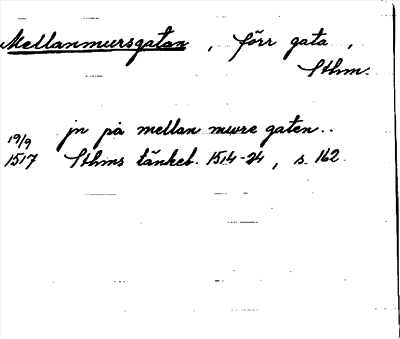 Mellanmursgatan, förr gata,
Sthm.
19/9 jn på mellan mwre gaten..
1517 Sthms tänkeb. 1514-24, s. 162